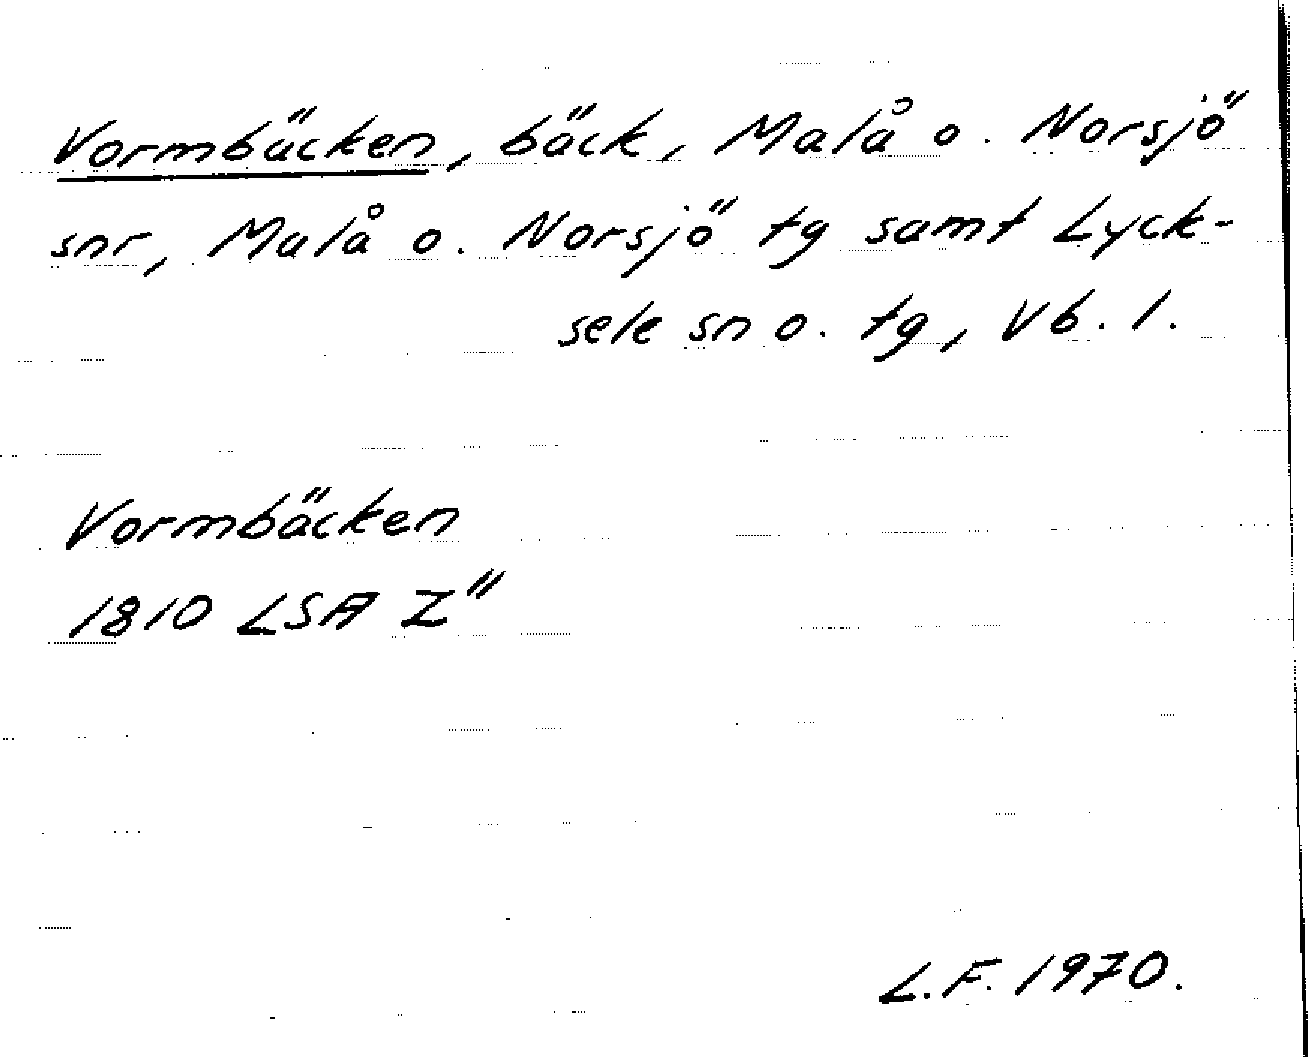 Vormbäcken, bäck, Malå o. Norsjö
snr, Malå o. Norsjö tg samt Lyck-
sele sn o. tg, Vb. l.
Vormbäcken
1810 LSA Z"
L.F. 1970.